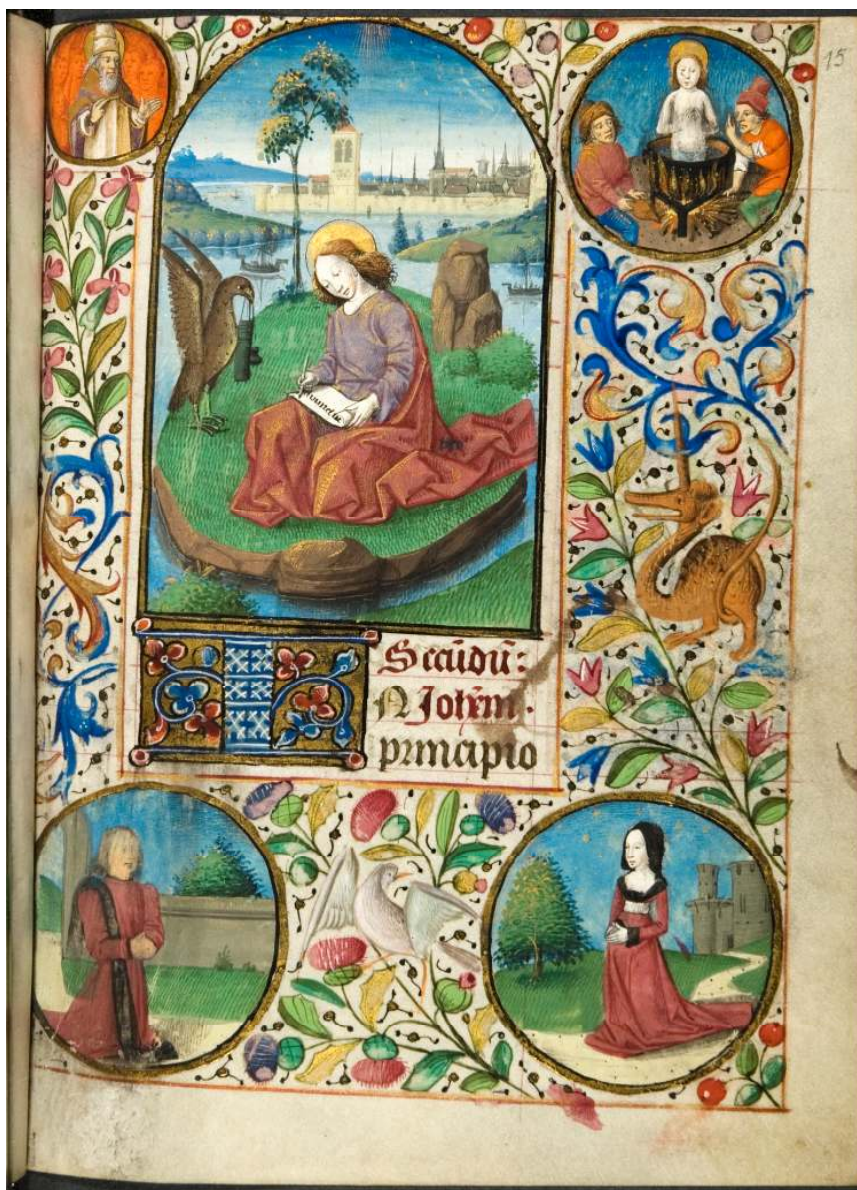 15
Secūdū:
N Johēm.
principio